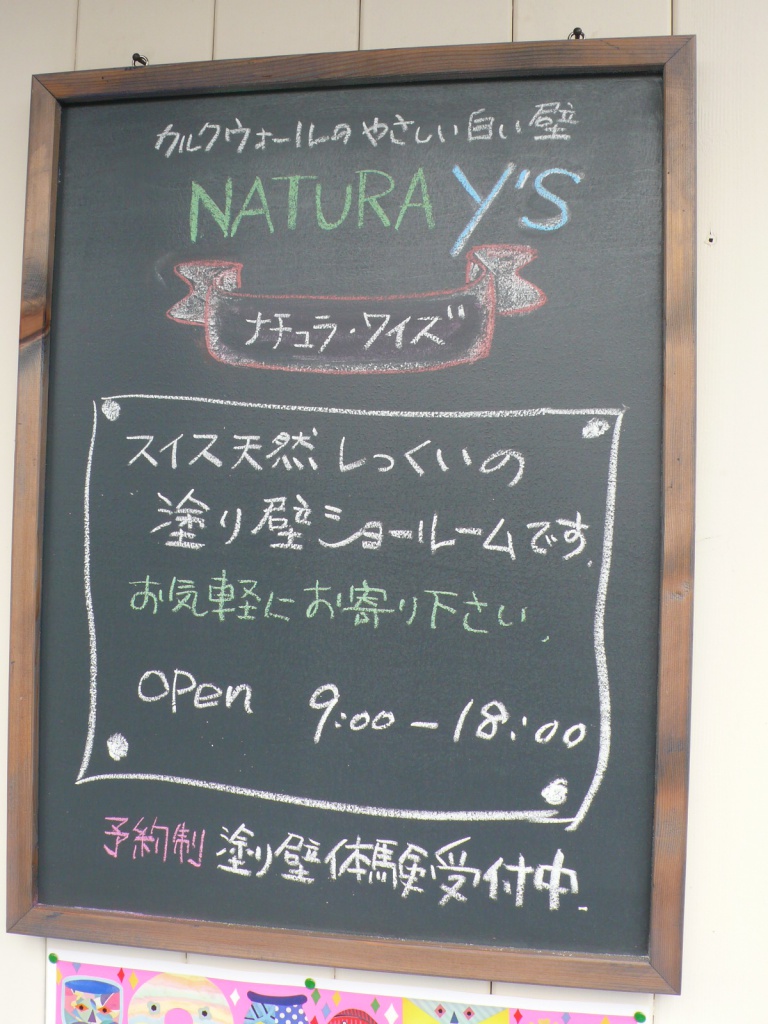 カルクウォールのやさしい白い壁
NATURA Y'S
ナチュラ・ワイズ
スイス天然しっくいの
塗り壁ショールームです。
お気軽にお寄り下さい。
OPen 9:00-18:00
予約制 塗り壁体験受付中.